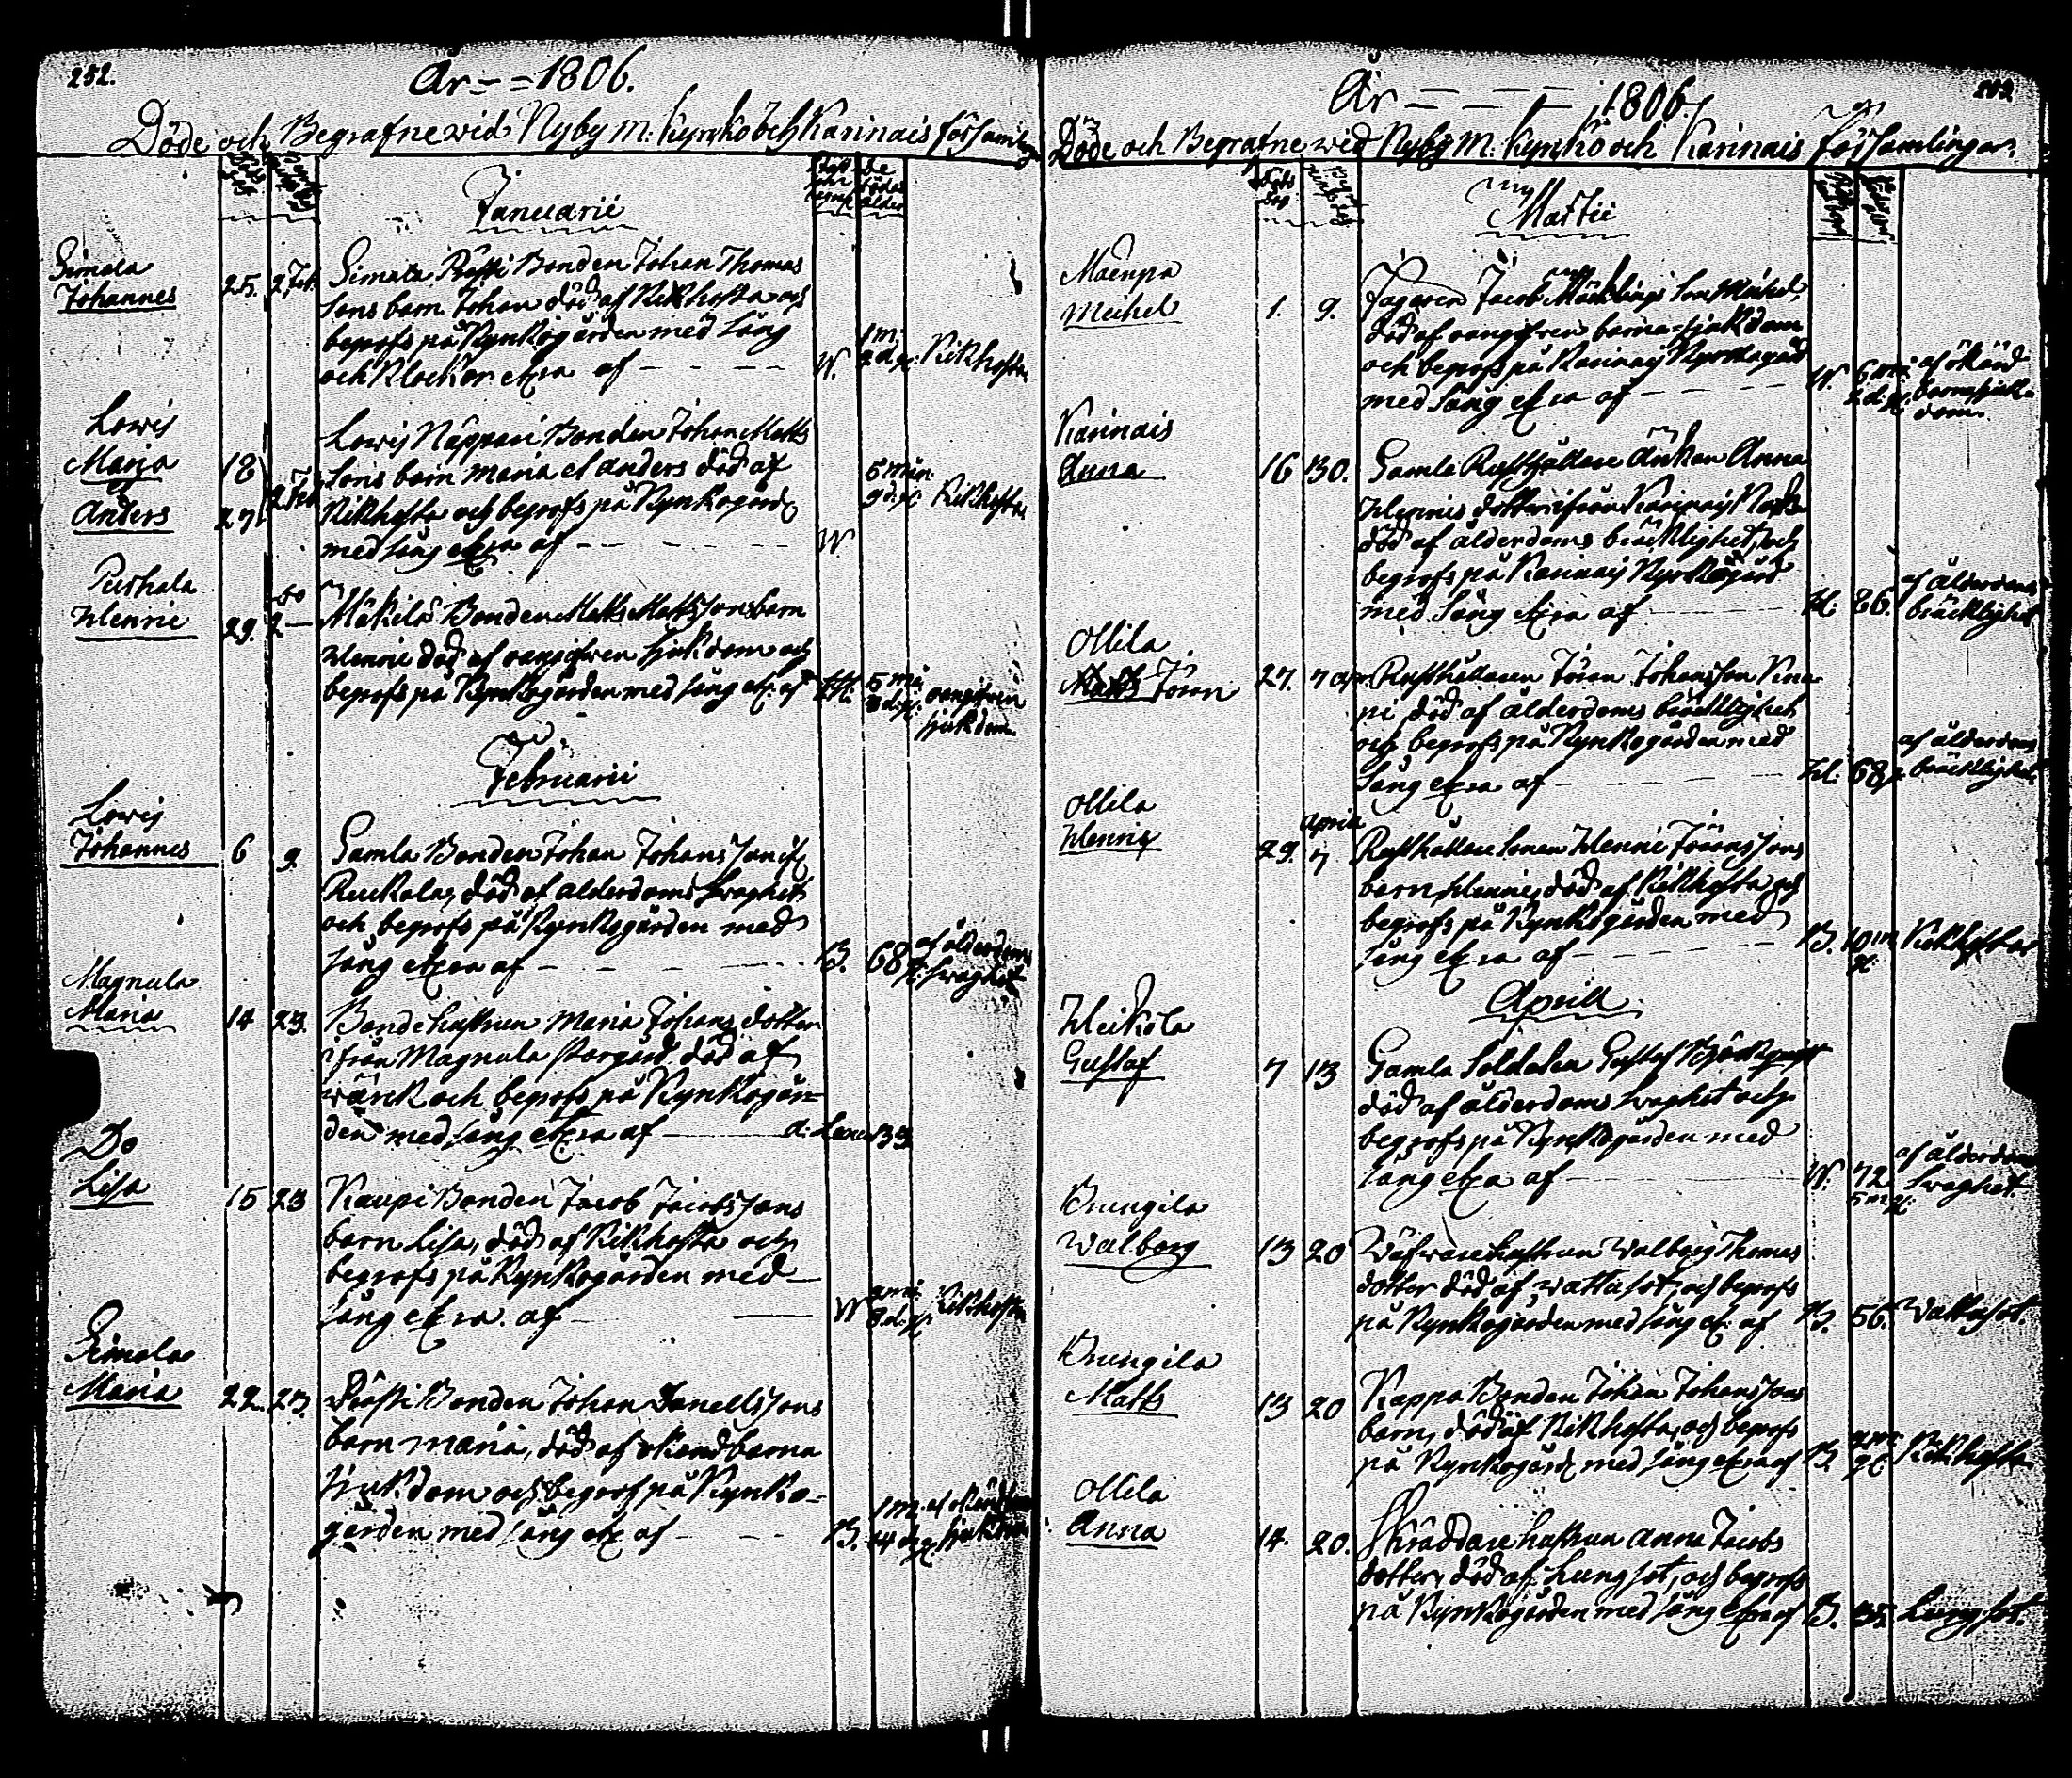 252.
År - = 1806.
Döde och Begrafne wid Nyby m: Kyrko och Karinais församlingar
Januarii
Simala
Johannes
25. 2 Feb. Simala Pråsti Bonden Johan Thomas
Sons barn Johan död af Kikhosta och
begrofs på Kyrkogården med sång
och Klockor etxa af W. 1 m: 2 d. gl. Kikhosta
Lowis
Maria
Anders
18
27
2 Feb
Lowis Näppari Bonden Johan Matts
Sons barn Maria et Anders död af
Kikhosta och begrofs på Kyrkogård
med sång etxa af W. 5 mån. 9 d. gl. Kikhosta
Purhala
Henric
29. 2 do Mäkilä Bonden Matts Mattssons barn
Henric död af oangifven sjukdom och
begrofs på Kyrkogården med sång etx: af 5 må. 3 d. gl. oangifven
sjukdom.
Februarii
Lowis
Johannes
6 9 Gamla Bonden Johan Johans Son if
Ruckala, död af ålderdoms swaghet
och begrofs på Kyrkogården med
sång etxa af B. 68 af ålderdoms
swaghet
Magnula
Maria
14 23. Bondehustrun Maria Johans dotter
ifrån Magnula Storgård död af
wärck och begrofs på Kyrkogår-
den med sång etxa af 39
Do
Lisa
15 23 Kaupi Bonden Jacob Jacobs Sons
barn Lisa, död af Kikhosta och
begrofs på Kyrkogården med
sång etxa af W 8 d. gl. Kikhosta
Simala
Maria
22. 23. Pråsti Bonden Johan Danells Sons
barn Maria, död af okiend barna
sjukdom och begrof på Kyrko-
gården med sång etx af B. 1 m. 14 d. gl. af okänd
sjukdom
År - - - - 1806.
Döde och Begrafne wed Nyby M: Kyrko och Karinais församlingar.
Martii
Mäenpä
Michel
1. 9. Jägaren Jacob Sons Michel,
död af oangifven barna-sjukdom
och begrofs på Karinais Kyrkogård
med sång etxa af W. 6 må 2 d: gl. af okänd
barnasjuk-
dom.
Karinais
Anna
16 30. Gamla Rusthållare Änkan Anna
Henrics dotter ifrån Karinais
död af ålderdoms bräcklighet, och
begrofs på Karinais Kyrkogård
med sång etxa af H. 86. af ålderdoms
bräcklighet
Ollila
Matts Jöran 27. 7 apr. Rusthållaren Jöran Johansson
död af ålderdoms bräcklighet
och begrofs på Kyrkogården med
sång etxa af H. 68 af ålderdoms
bräcklighet
Ollila
Henric
29. 7 April Rusthållare Sonen Henric Jöransons
barn Henric, död af Kikhosta och
begrofs på Kyrkogården med
sång etxa af B. 10 m gl. Kikhosta
Aprill
Heikola
Gustaf
7 13 Gamla Soldaten Gustaf
död af ålderdoms swaghet och
begrofs på Kyrkogården med
sång etxa af W. 72 5 m gl. af ålderdoms
swaghet
Brungila
Walborg
13 20 Wäfware hustrun Walborg Thomas
dotter död af wattusot, och begrofs
på Kyrkogården med sång etx: af B. 56. Wattusot.
Brungila
Matts
13 20 Kappa Bonden Johan Johans Sons
barn, död af Kikhosta, och begrofs
på Kyrkogård med sång etxa af B. Kikhosta
Ollila
Anna
14. 20. Skräddare hustrun Anna Jacobs
dotter, död af Lungsot, och begrofs
på Kyrkogården med sång etxa af B. 35 Lungsot.